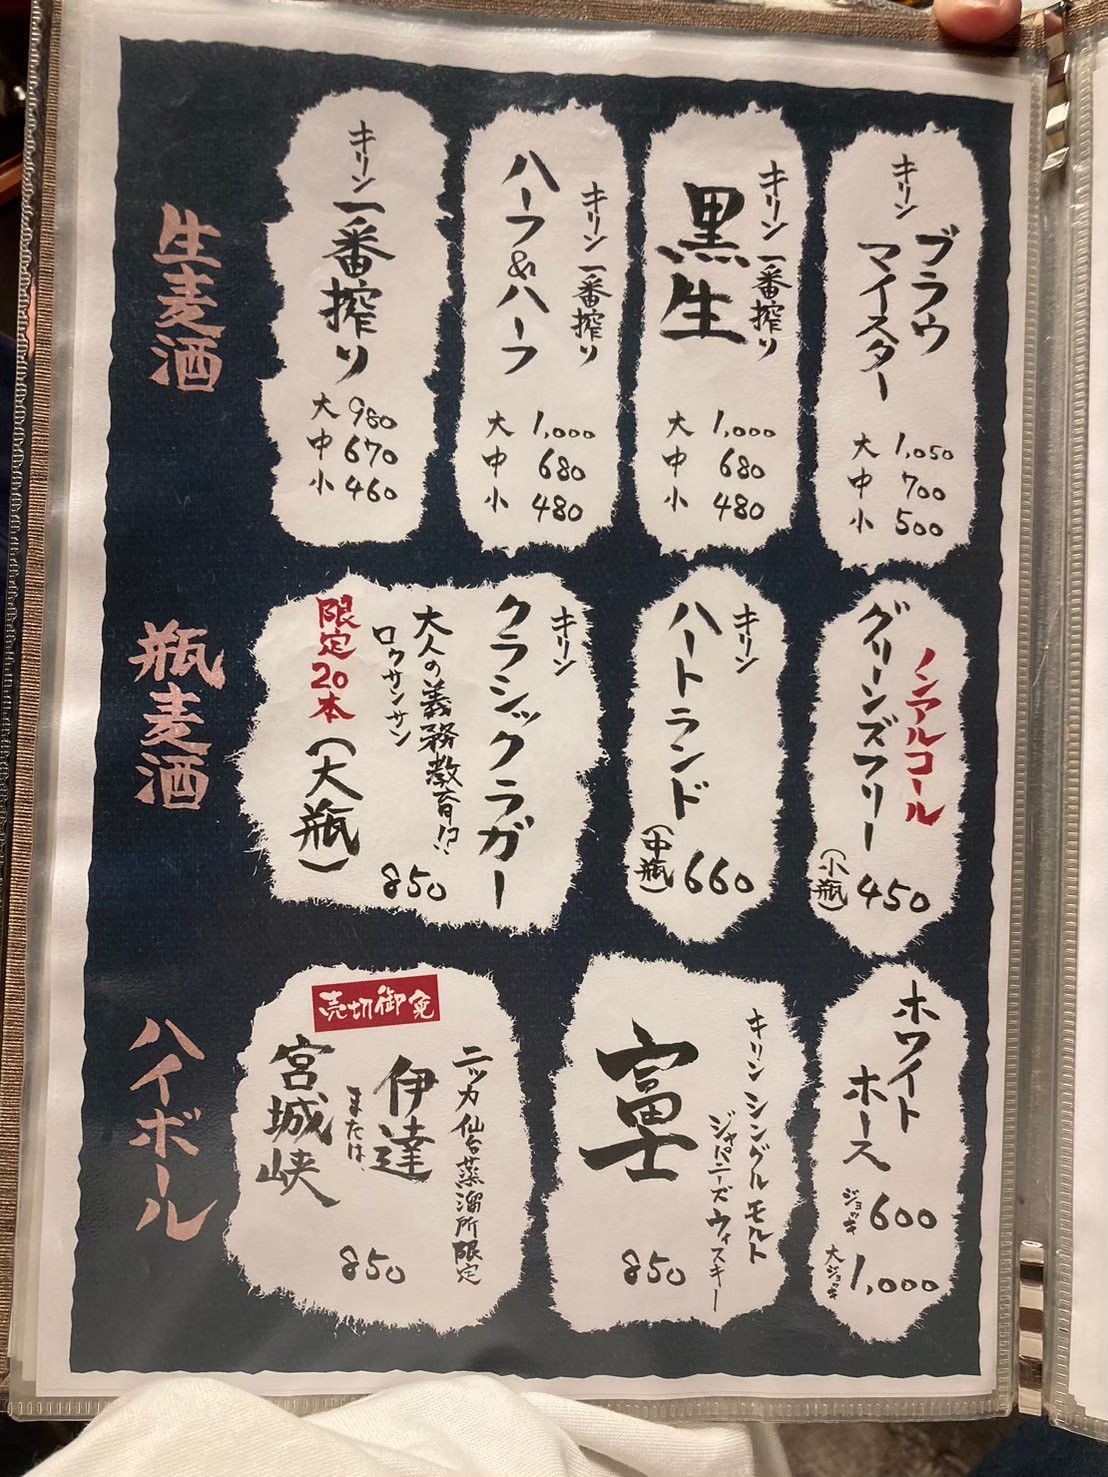 生麦酒
キリン
ブラウ
マイスター
大 1,050
中 700
小 500
キリン一番搾り
黒生
大 1,000
中 680
小 480
キリン一番搾り
ハーフ&ハーフ
大 1,000
中 680
小 480
キリン一番搾り
大 980
中 670
小 460
瓶麦酒
ノンアルコール
グリーンズフリー
(小瓶) 450
キリン
ハートランド
(中瓶) 660
キリン
クラシックラガー
大人の義務教育!?
ロクサンサン
限定20本(大瓶)
850
ハイボール
ホワイト
ホース
ジョッキ 600
大ジョッキ 1,000
キリン シングルモルト
ジャパニーズウィスキー
富士
850
売切御免
ニッカ仙台蒸溜所限定
伊達
または、
宮城峡
850